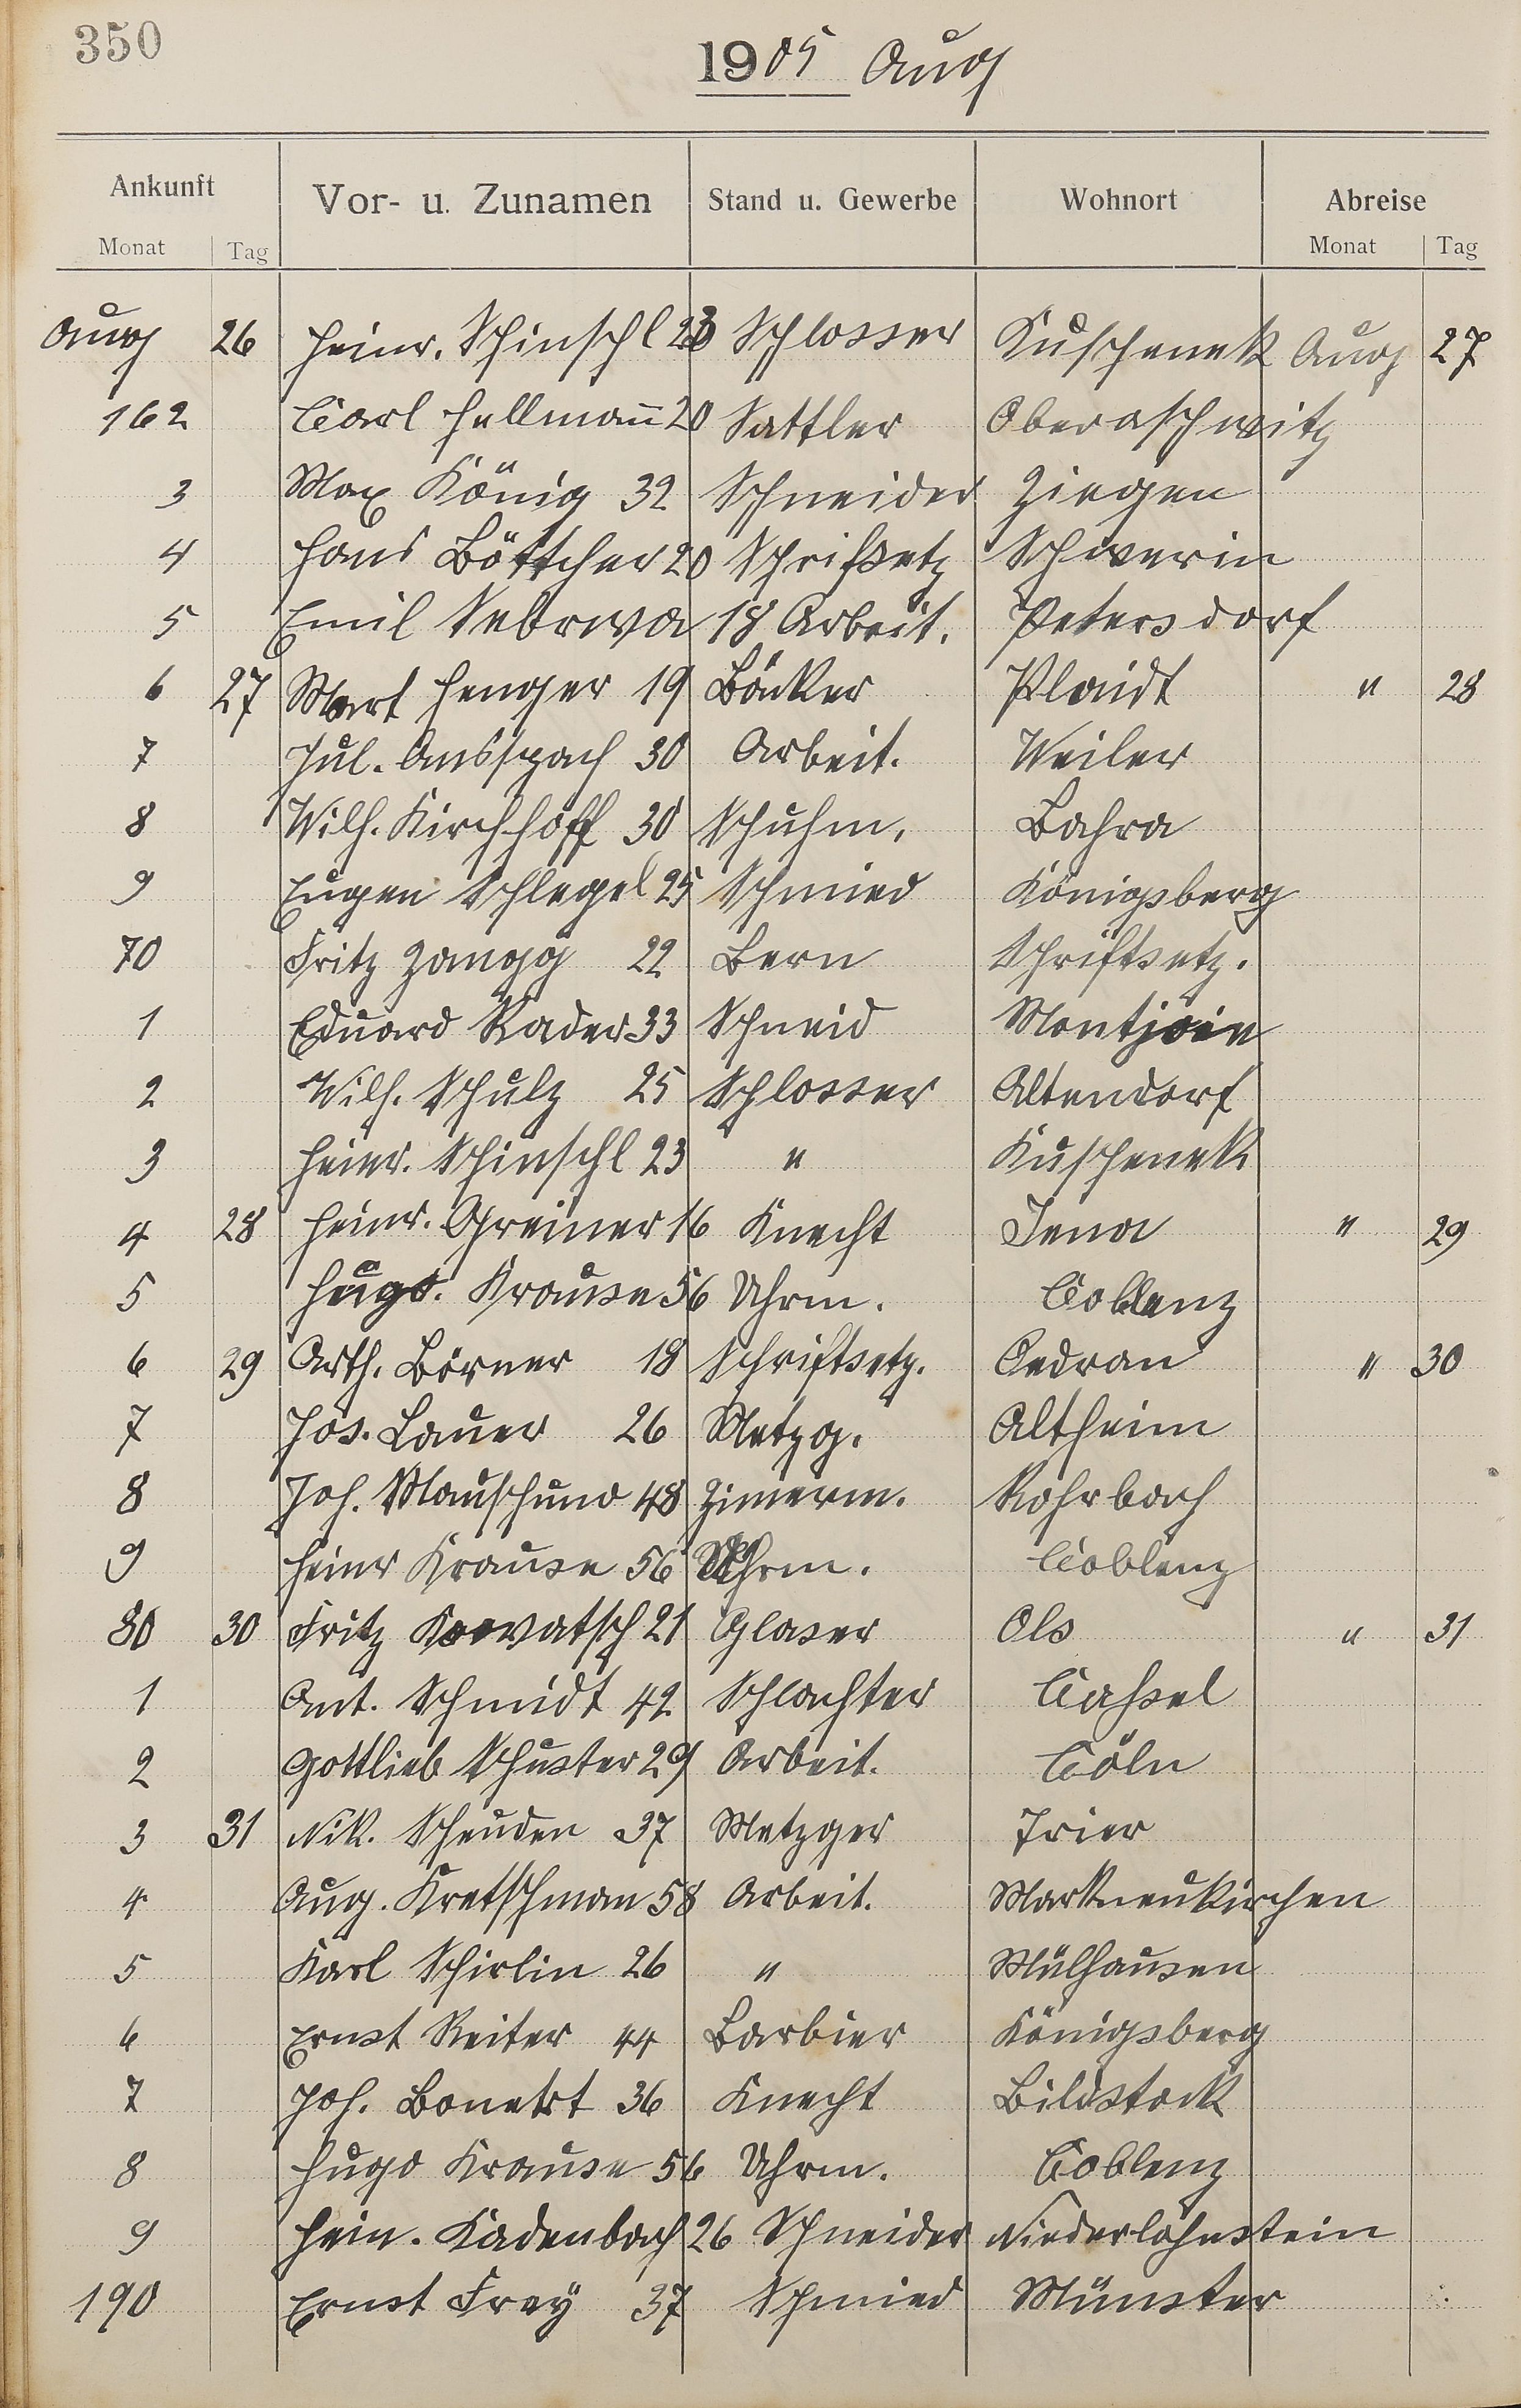 350
1905 Aug
Ankunft Vor- u. Zunamen Stand u. Gewerbe Wohnort Abreise
Monat Tag Monat Tag
Aug 26 Heinr. Schinschl 23 Schlosser Kuschenek Aug 27
162 Carl Hellman̄ 20 Sattler Oberaschwitz
3 Max König 32 Schneider Ziegen
4 Hans Böttcher 20 Schrifsetz Schwerin
5 Emil Sebrwa 18 Arbeit. Petersdorf
6 27 Mart Henger 19 Bäcker Plaidt " 28
7 Jul. Ansspach 30 Arbeit. Weiler
8 Wilh. Kirchhoff 30 Schuhm. Bahra
9 Eugen Schlegel 25 Schmied Königsberg
70 Fritz Zaugg 22 Bern Schriftsetz.
1 Eduard Rader 33 Schneid Montjoie
2 Wilh. Schulz 25 Schlosser Altendorf
3 Heinr. Schinschl 23 " Kuschenek
4 28 Heinr. Greiner 16 Knecht Jena " 29
5 Hugo. Krause 56 Uhrm. Coblenz
6 29 Arth. Börner 18 Schriftsetz. Oedran " 30
7 Jos. Lauer 26 Metzg. Altheim
8 Joh. Mauschund 48 Zimerm. Rohrbach
9 Heinr Krause 56 Uhrm. Coblenz
80 30 Fritz Kowatsch 21 Glaser Ols " 31
1 Ant. Schmidt 42 Schlachter Cassel
2 Gottlieb Schuster 29 Arbeit. Cöln
3 31 Nik. Scheuden 37 Metzger Trier
4 Aug. Kretschman 58 Arbeit. Markneukirchen
5 Karl Schirlin 26 " Mülhausen
6 Ernst Reiter 44 Barbier Königsberg
7 Joh. Bonekt 36 Knecht Bildstock
8 Hugo Krause 56 Uhrm. Coblenz
9 Hein. Kadenbach 26 Schneider Niederlahnstein
190 Ernst Frey 37 Schmied Münster